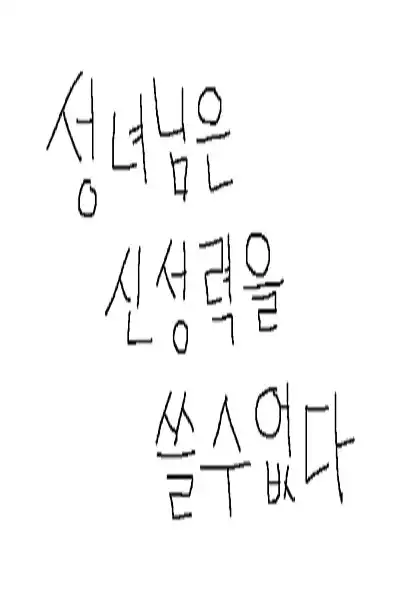 성녀님은
신성력을
쓸수없다